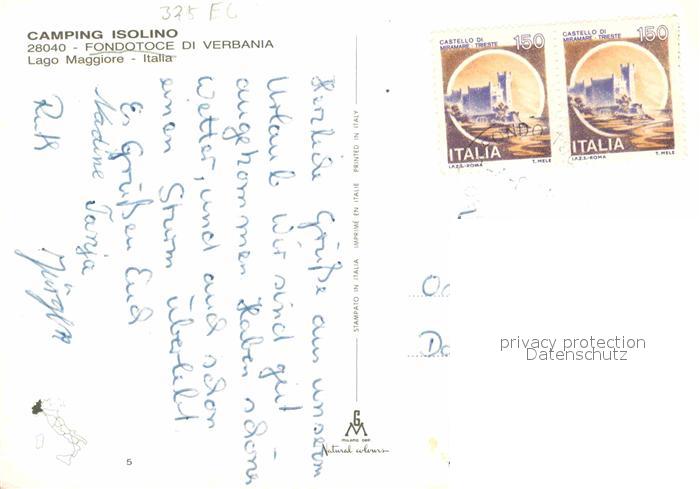 375 EC
CAMPING ISOLINO
28040 - FONDOTOCE DI VERBANIA
Lago Maggiore - Italia
Herzliche Grüße aus unserem
Urlaub Wir sind gut
angekommen haben schönes
Wetter, und auch schon
einen Sturm überlebt
Es Grüßen Euch
Nadine Tanja
Ruth
STAMPATO IN ITALIA IMPRIMÉ EN ITALIE PRINTED IN ITALY
CASTELLO DI
MIRAMARE - TRIESTE
150
ITALIA
I.P.Z.S. - ROMA T. MELE
CASTELLO DI
MIRAMARE - TRIESTE
150
ITALIA
I.P.Z.S. - ROMA T. MELE
privacy protection
Datenschutz
MILANO
Natural colours
5